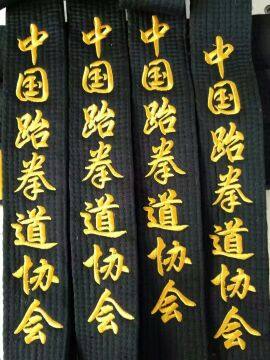 中国跆拳道协会
中国跆拳道协会
中国跆拳道协会
中国跆拳道协会